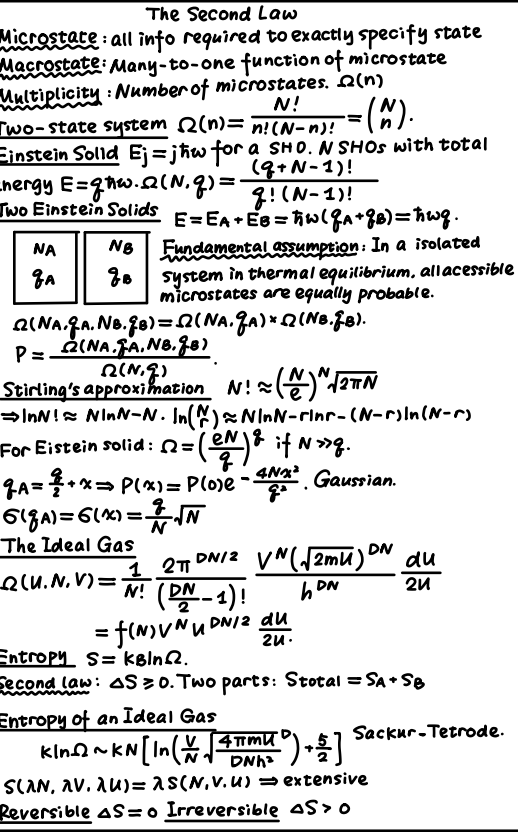 The Second Law
Microstate: all info required to exactly specify state
Macrostate: Many-to-one function of microstate
Multiplicity: Number of microstates. Ω(n)
Two-state system Ω(n) = N!/(n!(N-n)!) = (N n).
Einstein Solid Ej = jħω for a SHO. N SHOs with total
energy E = qħω. Ω(N,q) = (q+N-1)!/(q!(N-1)!)
Two Einstein Solids E = EA + EB = ħω(qA+qB) = ħωq.
NA NB Fundamental assumption: In a isolated
qA qB system in thermal equilibrium, all acessible
microstates are equally probable.
Ω(NA,qA,NB,qB) = Ω(NA,qA) × Ω(NB,qB).
P = Ω(NA,qA,NB,qB)/Ω(N,q).
Stirling's approximation N! ≈ (N/e)^N √2πN
⇒ lnN! ≈ NlnN-N. ln(N r) ≈ NlnN-rlnr-(N-r)ln(N-r)
For Eistein solid: Ω = (eN/q)^q if N ≫ q.
qA = q/2 + x ⇒ P(x) = P(0)e^-4Nx²/q². Gaussian.
σ(qA) = σ(x) = q/N √N
The Ideal Gas
Ω(U,N,V) = 1/N! 2π^DN/2/(DN/2-1)! V^N(√2mU)^DN/h^DN dU/2U
= f(N)V^N U^DN/2 dU/2U.
Entropy S = kBlnΩ.
Second law: ΔS ≥ 0. Two parts: Stotal = SA + SB
Entropy of an Ideal Gas
klnΩ ~ kN[ln(V/N √4πmU/DNh² ^D) + 5/2] Sackur-Tetrode.
S(λN, λV, λU) = λS(N,V,U) ⇒ extensive
Reversible ΔS = 0 Irreversible ΔS > 0